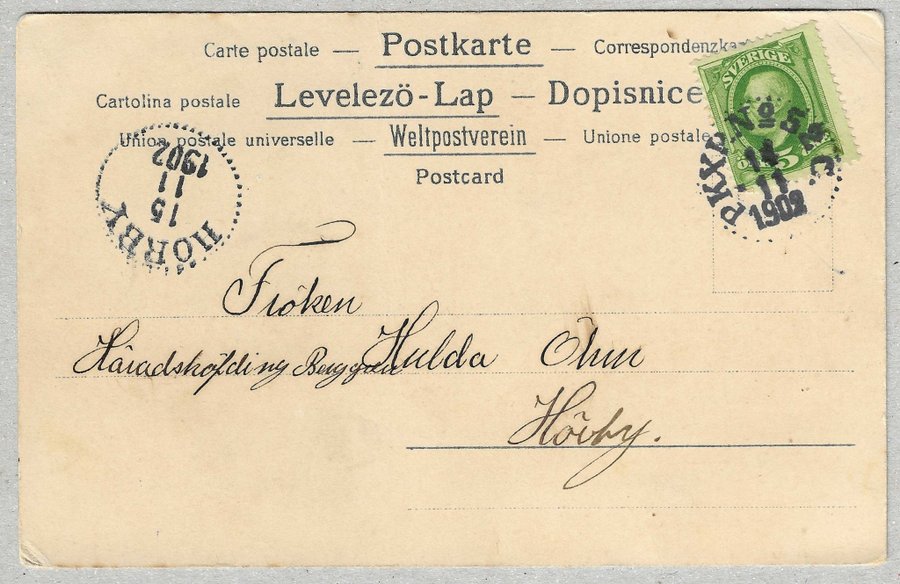 Carte postale — Postkarte — Correspondenzkart
Cartolina postale Levelezö-Lap — Dopisnice
Union postale universelle — Weltpostverein — Unione postale
Postcard
SVERIGE
ÖRE 5
PKXP No 5
14
11
1902
1902
11
15
HÖRBY
Fröken
Häradshöfding Berggren Hulda Öhrn
Hörby.